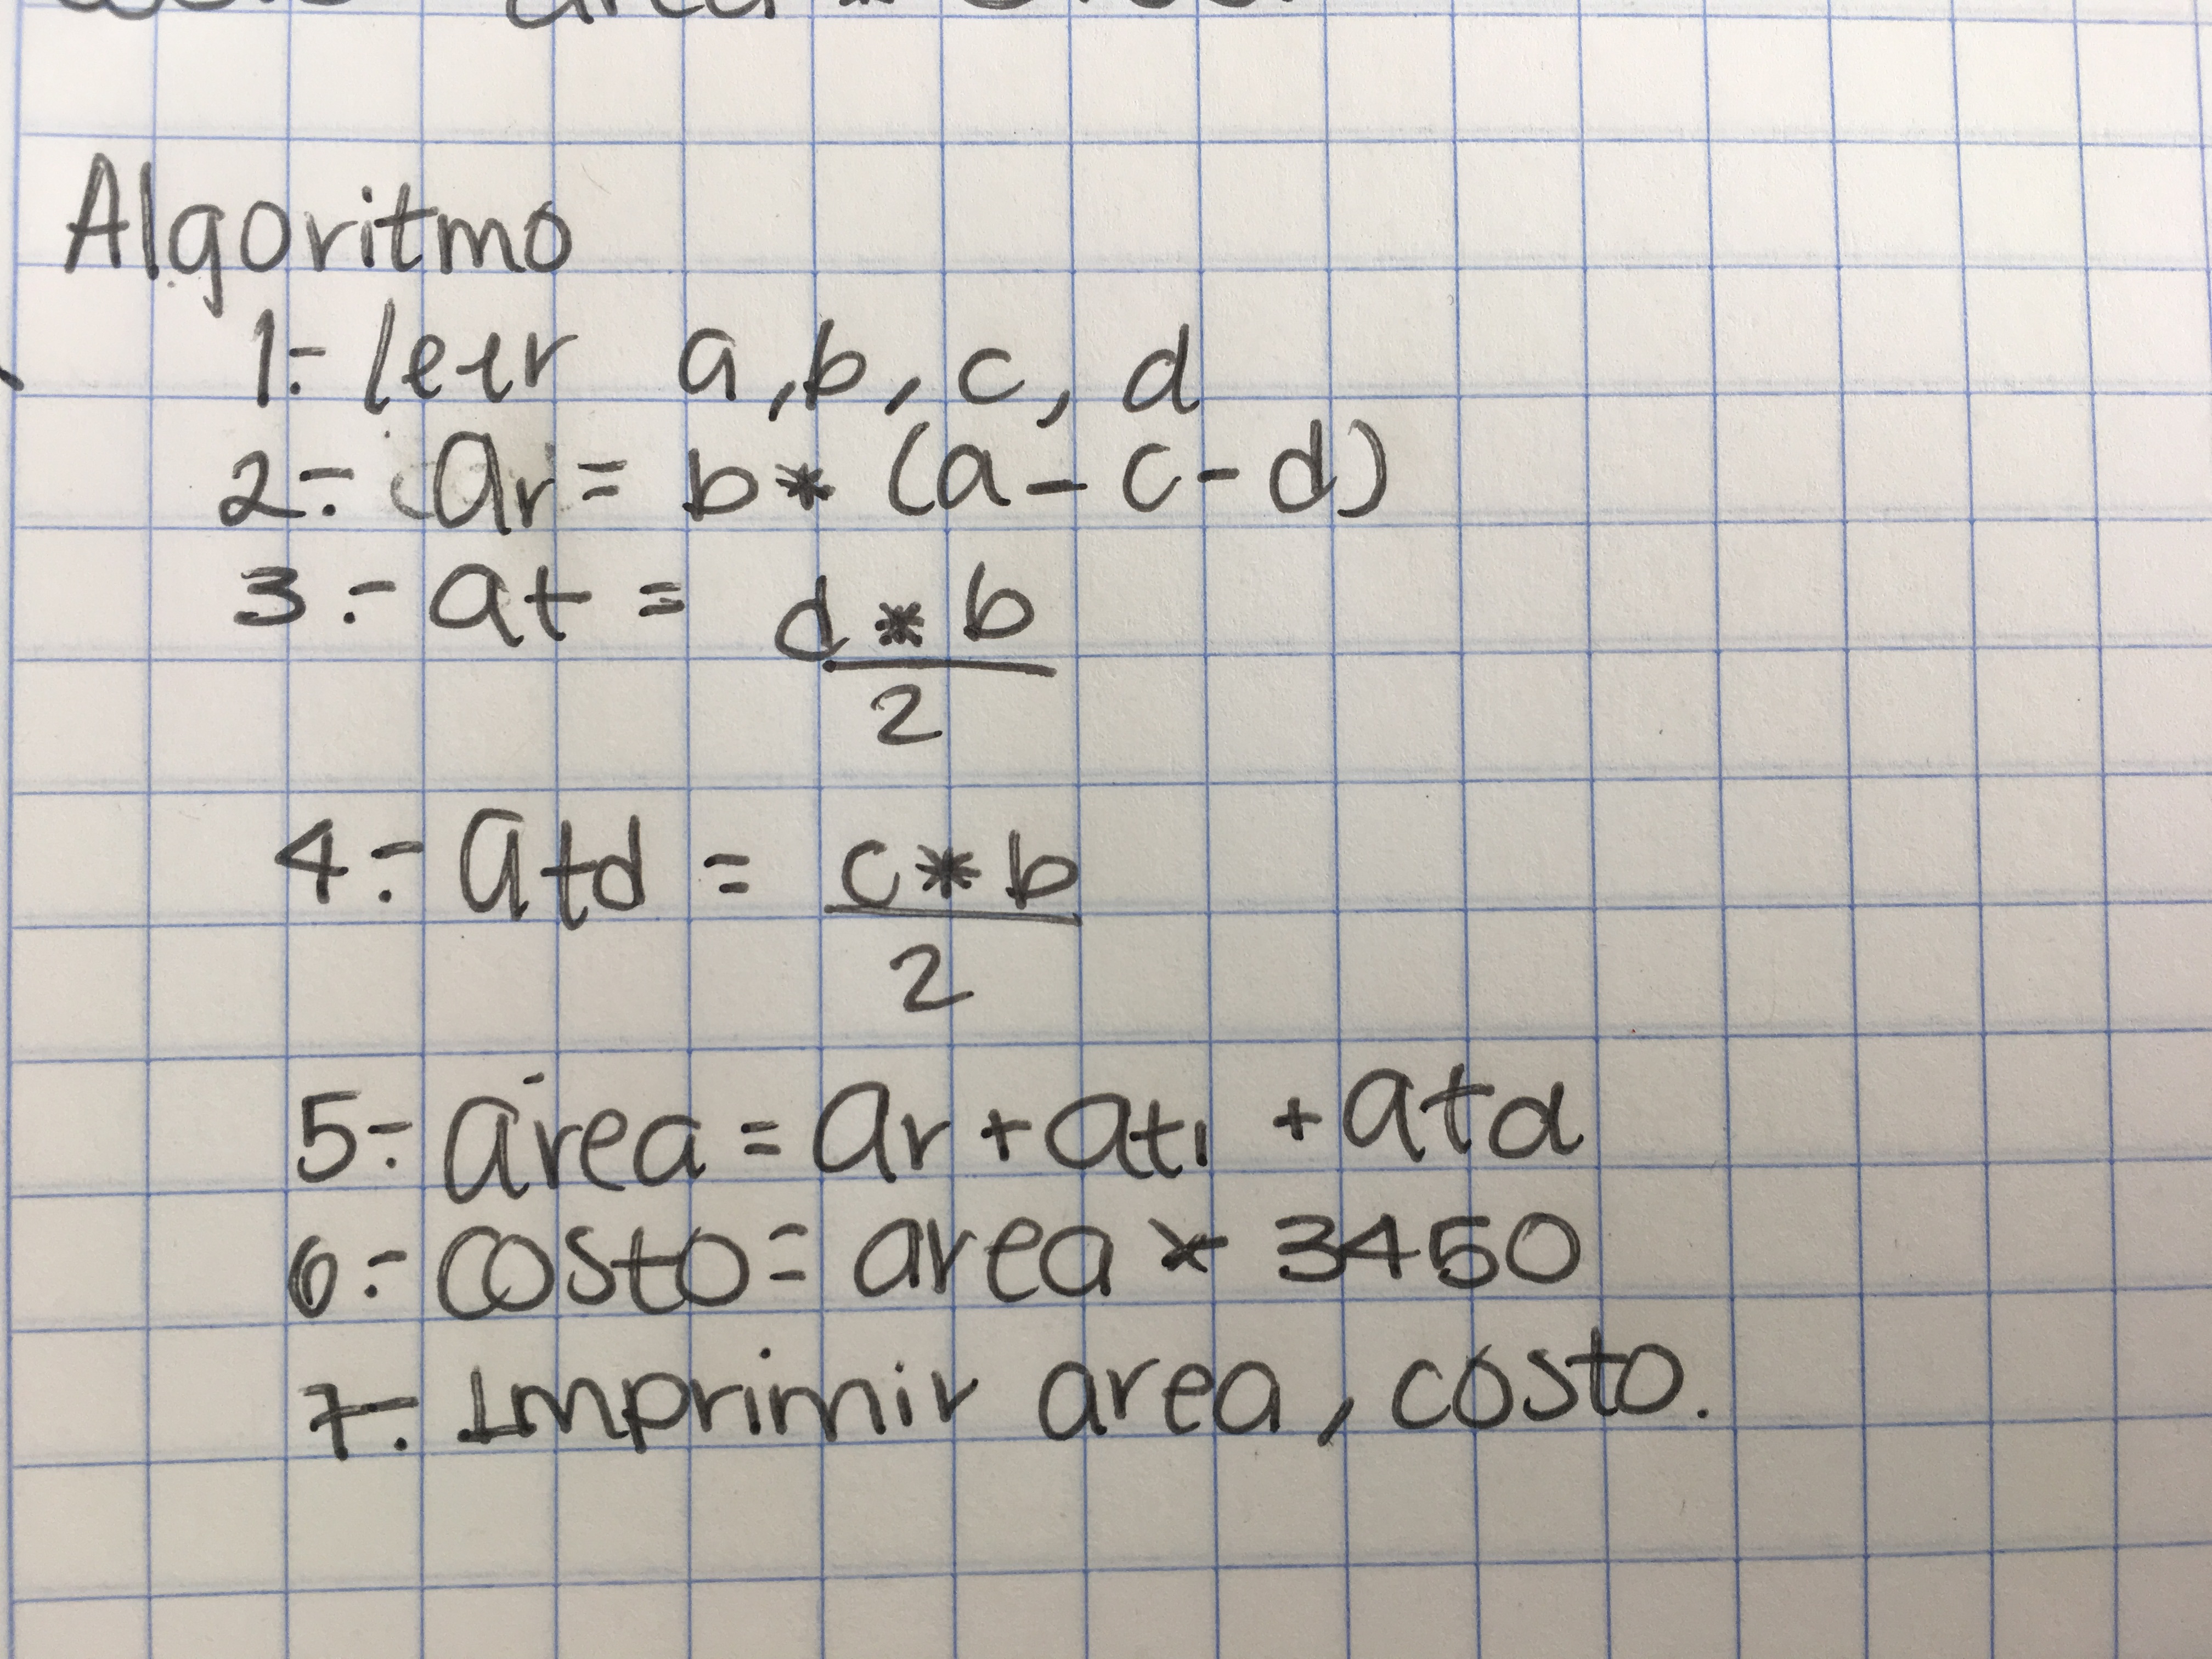 Algoritmo
1.- leer a, b, c, d
2.- ar = b * (a - c - d)
3.- at = d * b
2
4.- atd = c * b
2
5.- área = ar + ati + atd
6.- costo = area * 3450
7.- Imprimir area, costo.